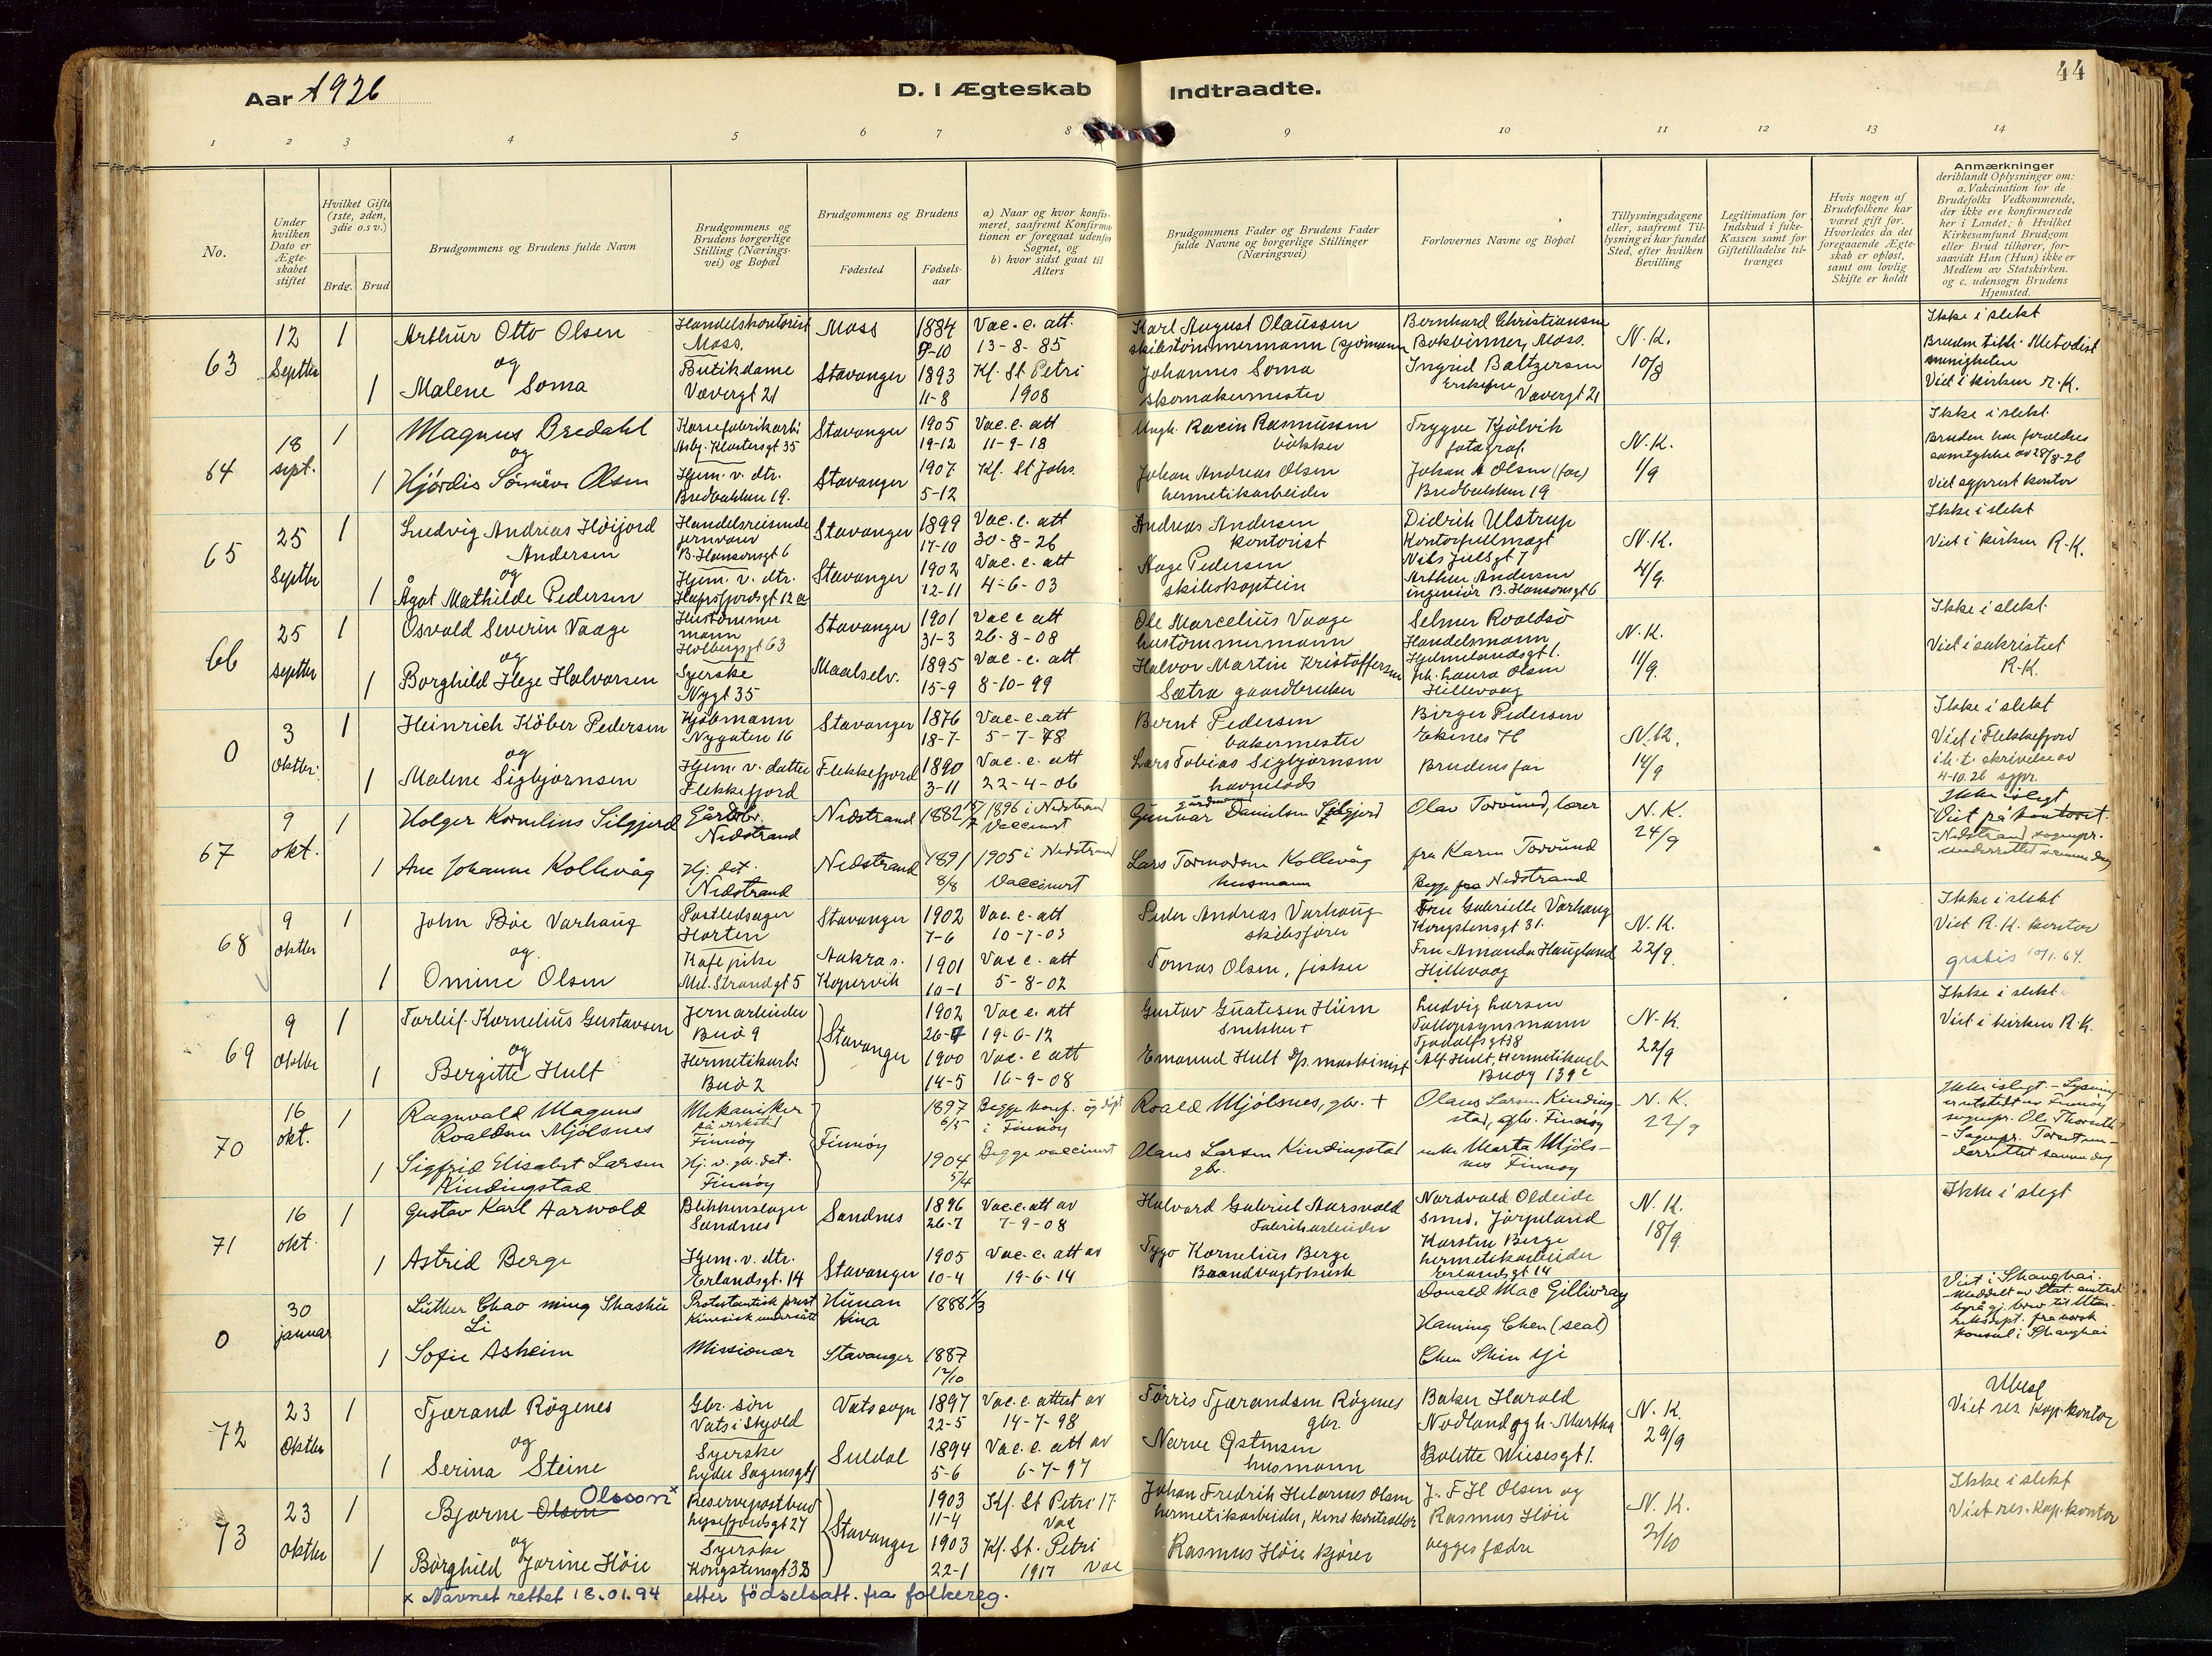 44
Aar 1926
D. I Ægteskab Indtraadte.
1 2 3 4 5 6 7 8 9 10 11 12 13 14
No.
Under hvilken Dato er Ægteskabet stiftet
Hvilket Gifte (1ste, 2den, 3die o.s.v.)
Brdg. Brud
Brudgommens og Brudens fulde Navn
Brudgommens og Brudens borgerlige Stilling (Næringsvei) og Bopæl
Brudgommens og Brudens
Fødested
Fødselsaar
a) Naar og hvor konfirmeret, saafremt Konfirmationen er foregaat udenfor Sognet, og
b) hvor sidst gaat til Alters
Brudgommens Fader og Brudens Fader fulde Navne og borgerlige Stillinger (Næringsvei)
Forlovernes Navne og Bopæl
Tillysningsdagene eller, saafremt Tillysning ei har fundet Sted, efter hvilken Bevilling
Legitimation for Indskud i fuke-Kassen samt for Giftetilladelse tiltrænges
Hvis nogen af Brudefolkene har været gift før. Hvorledes da det foregaaende Ægteskab er opløst, samt om lovlig Skifte er holdt
Anmærkninger
deriblandt Oplysninger om: a. Vakcination for de Brudefolks Vedkommende, der ikke ere konfirmerede her i Landet; b Hvilket Kirkesamfund Brudgom eller Brud tilhører, forsaavidt Han (Hun) ikke er Medlem av Statskirken. og c. udensogn Brudens Hjemsted.
63
12 Septbr
1
Arthur Otto Olsen
og
1 Malene Soma
Handelskontorist
Moss.
Butikdame
Vævergt 21
Moss
Stavanger
1884
9-10
1893
11-8
Vac. e. att.
13-8-85
Kf. St Petri
1908
Karl August Olaussen
skibstømmermann (sjømann
Johannes Soma
skomakermester
Bernhard Christiansen
Bokbinner, Moss.
Ingrid Baltzersen
Vævergt 21
N. K.
10/8
Ikke i slekt
Bruden tilh. Metodist
menigheten
Viet i kirken r. K.
64
18 sept.
1
Magnus Bredahl
og
1 Hjørdis Olsen
Klostersgt 35
Hjem. v. dtr.
Bredbakken 19.
Stavanger
Stavanger
1905
19-12
1907
5-12
Vac. e. att
11-9-18
Kf. St Johs.
Ungk. Rasmussen
bøkker
Johan Andreas Olsen
hermetikarbeider
Trygve Kjølvik
fotograf.
Johan A Olsen (far)
Bredbakken 19
N. K.
1/9
Ikke i slekt.
Bruden har foreldres
samtykke av 28/8-26
Viet sgprest kontor
65
25 Septbr
1
Ludvig Andreas Höijord
Andersen
og
1 Ågot Mathilde Pedersen
Handelsreisende
jernvarer
B. Hansonsgt 6
Hjem. v. dtr.
Hafrsfjordsgt 12 a
Stavanger
Stavanger
1899
17-10
1902
12-11
Vac. e. att
30-8-26
Vac. e. att
4-6-03
Andreas Andersen
kontorist
Aage Pedersen
skibskaptein
Didrik Ulstrup
Kontorfullmægt
Nils Juelsgt 7
Arthur Andersen
ingeniør B. Hansonsgt 6
N. K.
4/9
Ikke i slekt
Viet i kirken R. K.
66
25 septbr
1
Osvald Severin Vaage
og
1 Borghild Hege Halvorsen
Hustømmer
mann
Holbergsgt 63
Syerske
Nygt 35
Stavanger
Maalselv.
1901
31-3
1895
15-9
Vac e att
26-8-08
Vac. e. att
8-10-99
Ole Marcelius Vaage
hustømmermann
Halvor Martin Kristoffersen
Sætra gaardbruker
Selmer Roaldsø
Handelsmann
Hjelmelandsgt 1.
frk. Laura Olsen
Hillevaag
N. K.
11/9.
Ikke i slekt
Viet i sakristiet
R-K.
0
3 Oktbr.
1
Heinrich Köber Pedersen
og
1 Malene Sigbjørnsen
Kjøbmann
Nygaten 16
Hjem. v. datter
Flekkefjord
Stavanger
Flekkefjord
1876
18-7-
1890
3-11
Vac. e. att
5-7-78
Vac. e. att
22-4-06
Bernt Pedersen
bakermester
Lars Tobias Sigbjørnsen
havnelods
Birger Pedersen
Brudens far
N. K.
14/9
Ikke i slekt
Viet i Flekkefjord
i h. t. skrivelse av
4-10.26 sgpr.
67
9 okt.
1
Holger Kornelius Silgjerd
1 Ane Johanne Kollevåg
Gårdbr.
Nedstrand
Hj. dat.
Nedstrand
Nedstrand
Nedstrand
1882
1891
8/8
1896 i Nedstrand
Vaccinert
1905 i Nedstrand
Vaccinert
gårdmann
Gunnar Danielsen Silgjerd
Lars Tormodsen Kollevåg
husmann
Olav Torvund, lærer
fru Karen Torvund
Begge fra Nedstrand
N. K.
24/9
Ikke i slegt
Viet på kontoret.
- Nedstrand sognepr.
underrettet samme dag
68
9 oktbr
1
John Böe Varhaug
og.
1 Omine Olsen
Postledsager
Horten
Kafepike
Ml. Strandgt 5
Stavanger
Aakra s.
Kopervik
1902
7-6
1901
10-1
Vac. e. att
10-7-03
Vac e. att
5-8-02
Peder Andreas Varhaug
skibsfører
Tomas Olsen, fisker
Fru Gabrielle Varhaug
Kongstensgt 31.
Fru Amanda Haugland
Hillevaag
N. K.
22/9.
Ikke i slekt
Viet R. K. kontor
gratis 10/1.64.
69
9 Oktbr
1
Torleif Kornelius Gustavsen
og
1 Bergitte Hult
Jernarbeider
Buø 9
Hermetikarb.
Buø 2
Stavanger
1902
26-7
1900
14-5
Vac e. att
19-6-12
Vac. e att
16-9-08
Gustav Hüm
snekker +
Emanuel Hult d/p. maskinist
Ludvig Larsen
Tollopsynsmann
Tjodolfsgt 38
Alf Hult, Hermetikarb
Buøy 139 c
N. K.
22/9
Ikke i slekt
Viet i kirken R. K.
70
16 okt.
1
Ragnvald Magnus
Roaldsen Mjölsnes
1 Sigfrid Elisabet Larsen
Kindingstad
Mekaniker
på verksted
Finnøy
Hj. v. gbr. dat.
Finnøy
Finnøy
1897
6/5
1904
5/4
Begge konf. og døpt
i Finnøy
Begge vaccinert
Roald Mjölsnes, gbr. +
Olaus Larsen Kindingstad
gbr.
Olaus Larsen Kinding-
stad, gbr. Finnøy
enke Marta Mjöls-
nes Finnøy
N. K.
22/9
Ikke i slegt. - Lysning
utstedt av Finnøy
sognepr. Ol. Thorseth
derrettet samme dag
71
16 okt.
1
Gustav Karl Aarwold
1 Astrid Berge
Blikkenslager
Sandnes
Hjem. v. dtr.
Erlandsgt. 14
Sandnes
Stavanger
1896
26-7
1905
10-4
Vac. e. att av
7-9-08
Vac. e. att av
19-6-14
Halvard Gabriel Aarsvold
Fabrikarbeider
Kornelius Berge
Brandvagtskusk
Nordvald Oldeide
Smed, Jørpeland
Karsten Berge
hermetikarbeider
Erlandsgt 14
N. K.
18/9
Ikke i slegt
0
30 januar
Luther Chao ming Shashü
Li
1 Sofie Asheim
Protestantisk prest
Kinesisk undersått
Missionær
Hunan
Kina
Stavanger
1888 1/3
1887
12/10
Donald Mac Gillivray
Haming Chen (seal)
Chen Shin Yi
Viet i Shanghai.
- Meddelt av Stat. centrel
byrå gj. brev til Uten-
riksdept. fra norsk
konsul i Shanghai
72
23 Oktbr
1
Tjærand Rögenes
og
1 Serina Steine
Gbr. søn
Vats i Skjold
Syerske
Lyder Sagensgt 1
Vats sogn
Suldal
1897
22-5
1894
5-6
Vac. e. attest av
14-7-98
Vac. e. att av
6-7-97
Tørris Tjærandsen Rögenes
gbr.
Nærve Østensen
husmann
Baker Harald
Nødland og h. Martha
Bolette Wiesesgt 1.
N. K.
29/9
Ubesl
Viet res kap. kontor
73
23 oktbr
1
Bjarne Olsen Olsson x
og
1 Borghild Jorine Höie
Reservepostbud
Lysefjordsgt 27
Syerske
Kongstensgt 32
Stavanger
1903
11-4
1903
22-1
Kf. St Petri 17
Vac
Kf. St. Petri
1917 Vac
Johan Fredrik Helarius Olsen
hermetikarbeider,
Rasmus Höie kjører
J. F H Olsen og
Rasmus Höie
begges fædre
N. K.
2/10
Ikke i slekt
Viet res. kap. kontor
x Navnet rettet 18.01.94 etter fødselsatt. fra folkereg.